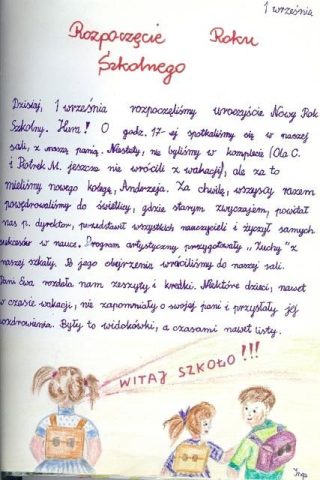 1 września
Rozpoczęcie Roku
Szkolnego
Dzisiaj, 1 września rozpoczęliśmy uroczyście Nowy Rok
Szkolny. Hura! O godz. 17-ej spotkaliśmy się w naszej
sali, z naszą panią. Niestety, nie byliśmy w komplecie (Ola C.
i Piotrek M. jeszcze nie wrócili z wakacji), ale za to
mieliśmy nowego kolegę, Andrzeja. Za chwilę, wszyscy razem
powędrowaliśmy do świetlicy, gdzie starym zwyczajem, powitał
nas p. dyrektor, przedstawił wszystkich nauczycieli i życzył samych
sukcesów w nauce. Program artystyczny przygotowały „Zuchy" z
naszej szkoły. Po jego obejrzeniu wróciliśmy do naszej sali.
Pani Ewa rozdała nam zeszyty i kredki. Niektóre dzieci, nawet
w czasie wakacji, nie zapomniały o swojej pani i przysłały jej
pozdrowienia. Były to widokówki, a czasami nawet listy.
WITAJ SZKOŁO!!!
Inga